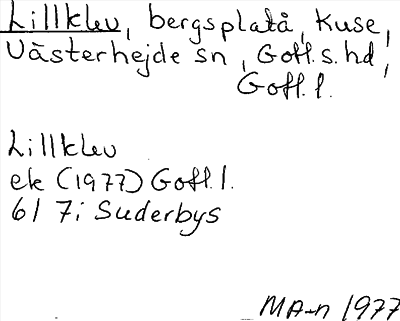 Lillklev, bergsplatå, Kuse,
Västerhejde sn, Gotl. s. hd,
Gotl. l.
Lillklev
ek (1977) Gotl. l.
6I 7i Suderbys
MA-n 1977